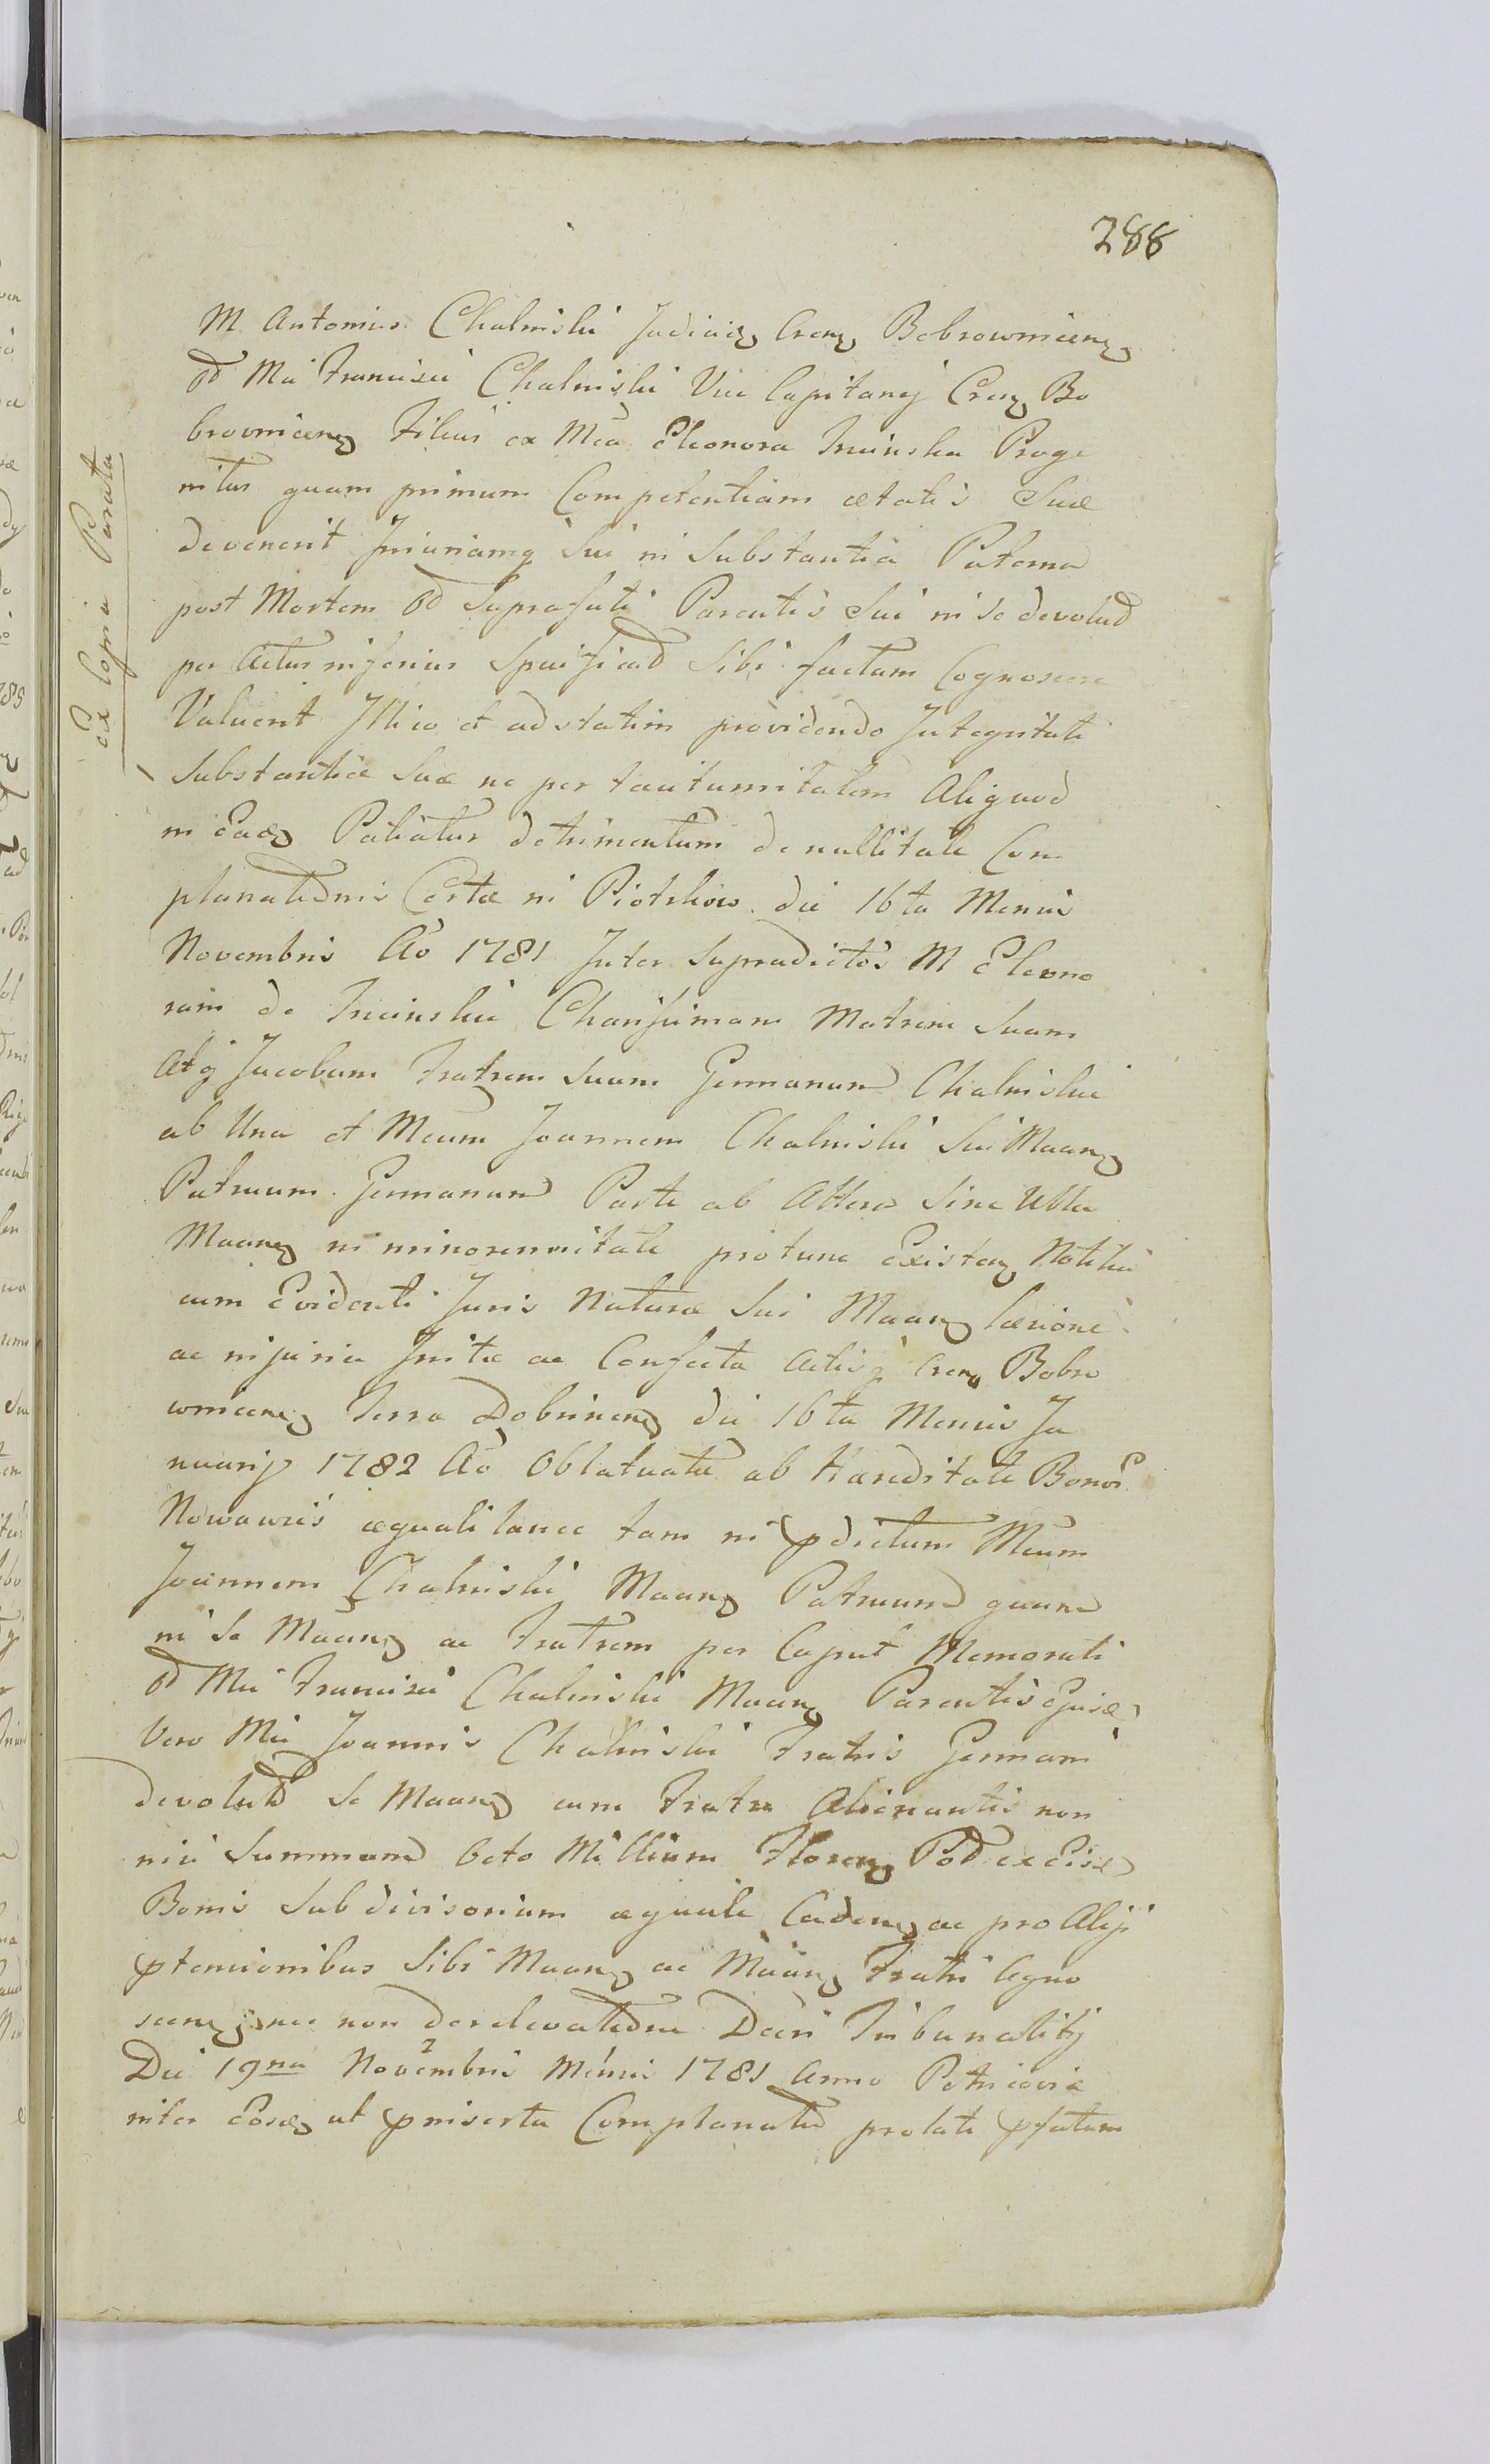 288
Ex Copia Parata
M. Antonius Chalinski Judicis Crens Bobrownicens
od Mci Francisci Chalinski Vice Capitanei Crens Bo
browniceng Filius ex Mca Eleonora Trcinska Proge
nitus quam primum Competentiam ætatis Suæ
devenerit Iniuriamq Sui in Substantia Paterna
post Mortem od Suprafati Parentis Sui in Se devolut
per Actus inferius Specificat Sibi factam Cognoscere
Valuerit Illico et adstatim providendo Integritati
Substantiæ Suæ ne per taciturnitatem Aliquod
in Ea Patiatur detrimentum de nullitate Com
planationis Certæ in Piotrkow die 16ta Mensis
Novembris Ao 1781 Inter Supradictos M Eleono
ram de Trcinskie Charissimam Matrem Suam
Atq Jacobum Fratrem Suum Germanum Chalinskie
ab Una et Mcum Joannem Chalinski Sui Maang
Patruum Germanum Parte ab Altera Sine Ulla
Maang in minorennitate protunc Existeng Notitia
cum Evidenti Juris Naturæ Sui Maang læsione
ac injuria Initæ ac Confecta Actisq Creng Bobro
wniceng Terræ Dobrineng die 16ta Mensis Ja
nuarij 1782 Ao Oblatuatæ ab Hæreditate Bonor
Nowawies æquali lance tam in pdictum Mcum
Joannem Chalinski Maang Patruum quam
in Se Maang ac Fratrem per Caput Memorati
od Mci Francisci Chalinski Maang Parentis
Vero Mci Joannis Chalinski Fratris Germani
devolut Se Maang cum Fratre Alienantis non
nisi Summam Octo Millium Floreng Pol ex
Bonis Subdivisorum æquale Cadeng ac pro Alijs
ptensionibus Sibi Maang ac Maang Fratri Agno
sceng nec non de relevatione Decri Tribunalitij
Die 19na Novembris Mensis 1781 Anno Petricoviæ
inter Eosd ut pinserta Complanatio prolati pfatum